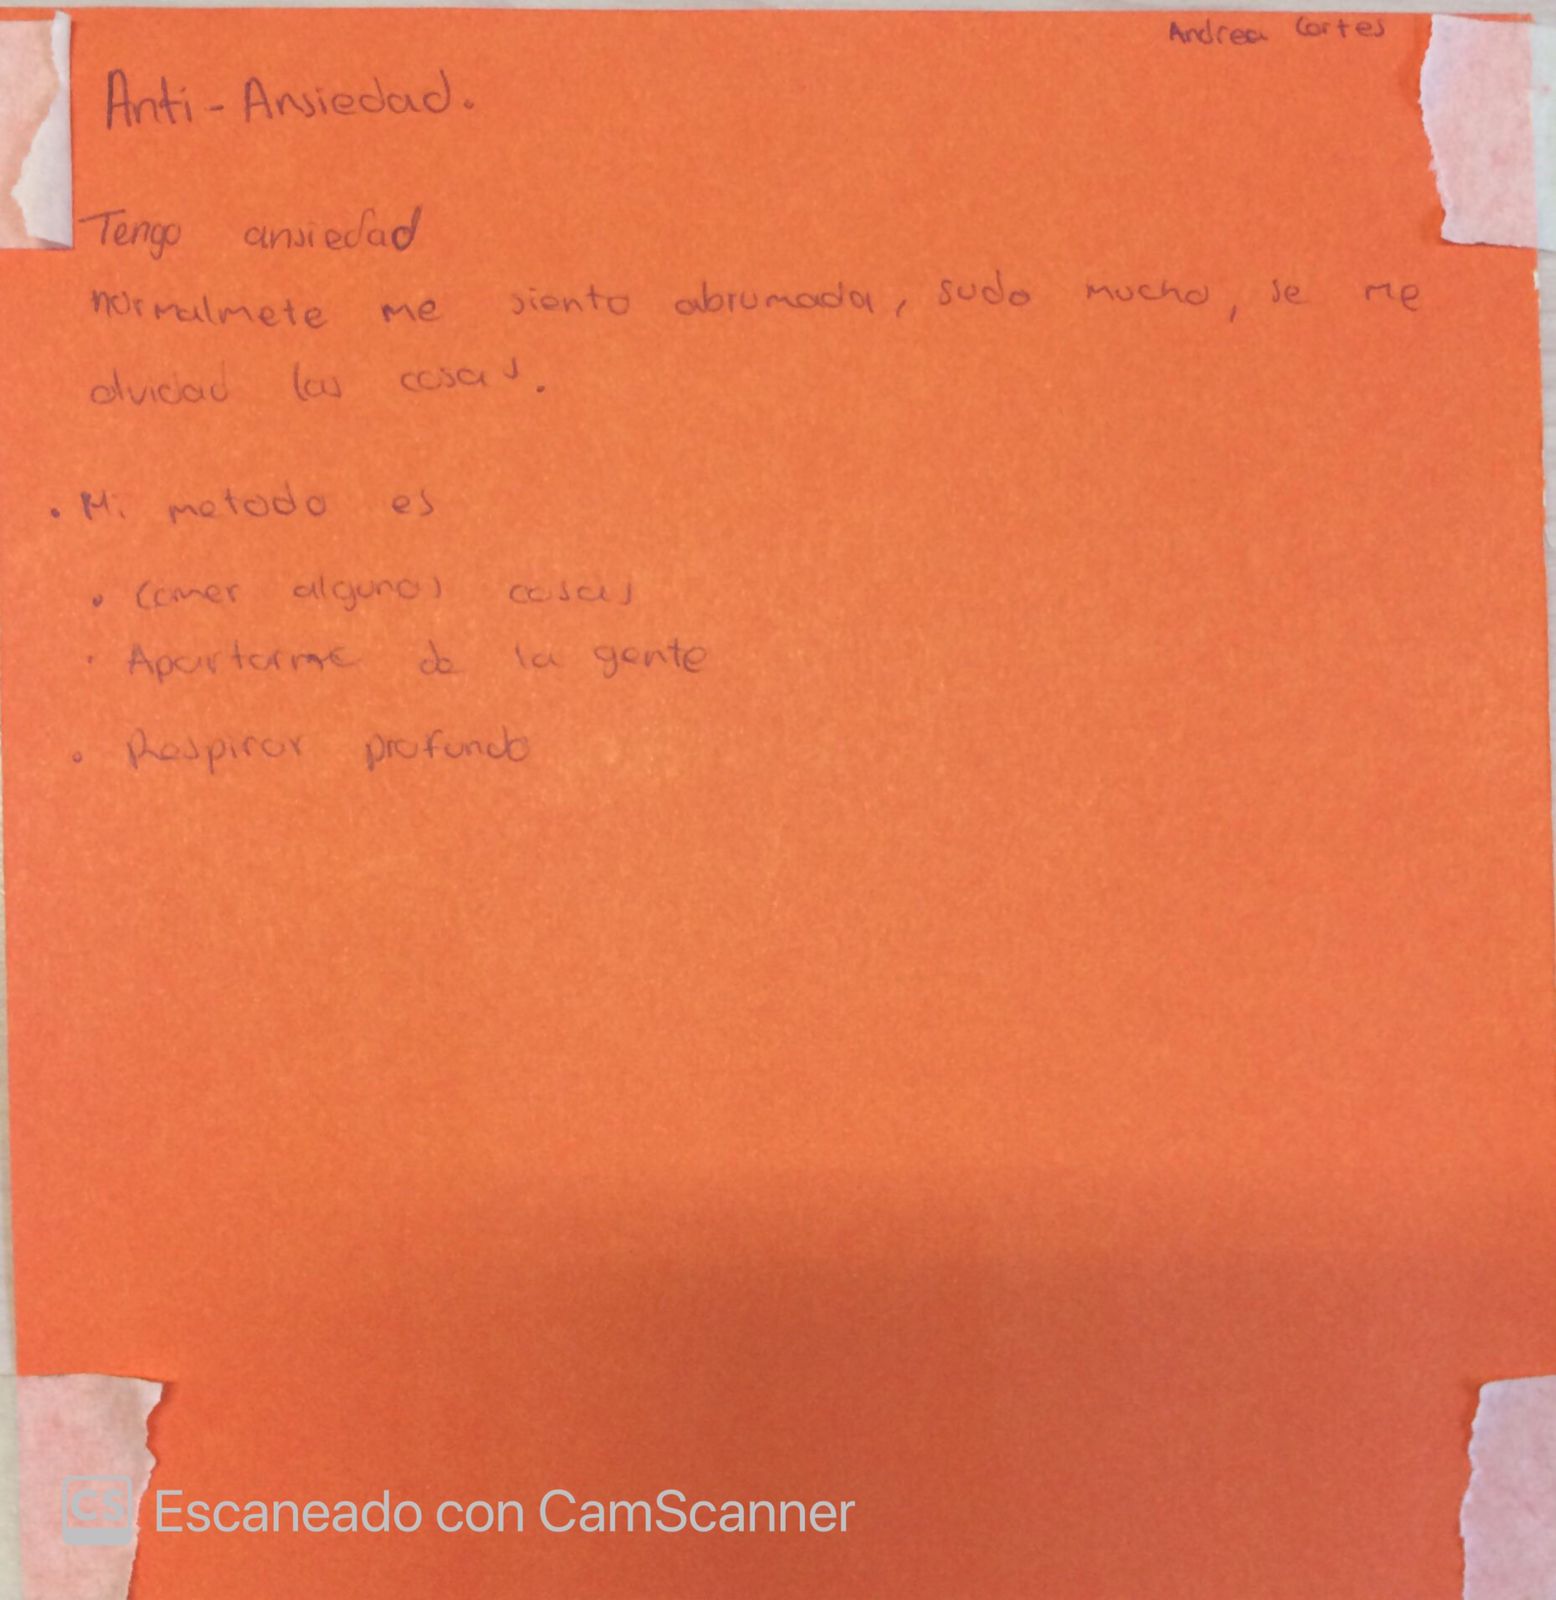 Andrea Cortes
Anti-Ansiedad.
Tengo ansiedad
normalmete me siento abrumada, sudo mucho, se me
olvidad las cosas.
• Mi metodo es
• Comer algunas cosas
• Apartarme de la gente
• Respirar profundo
CS Escaneado con CamScanner